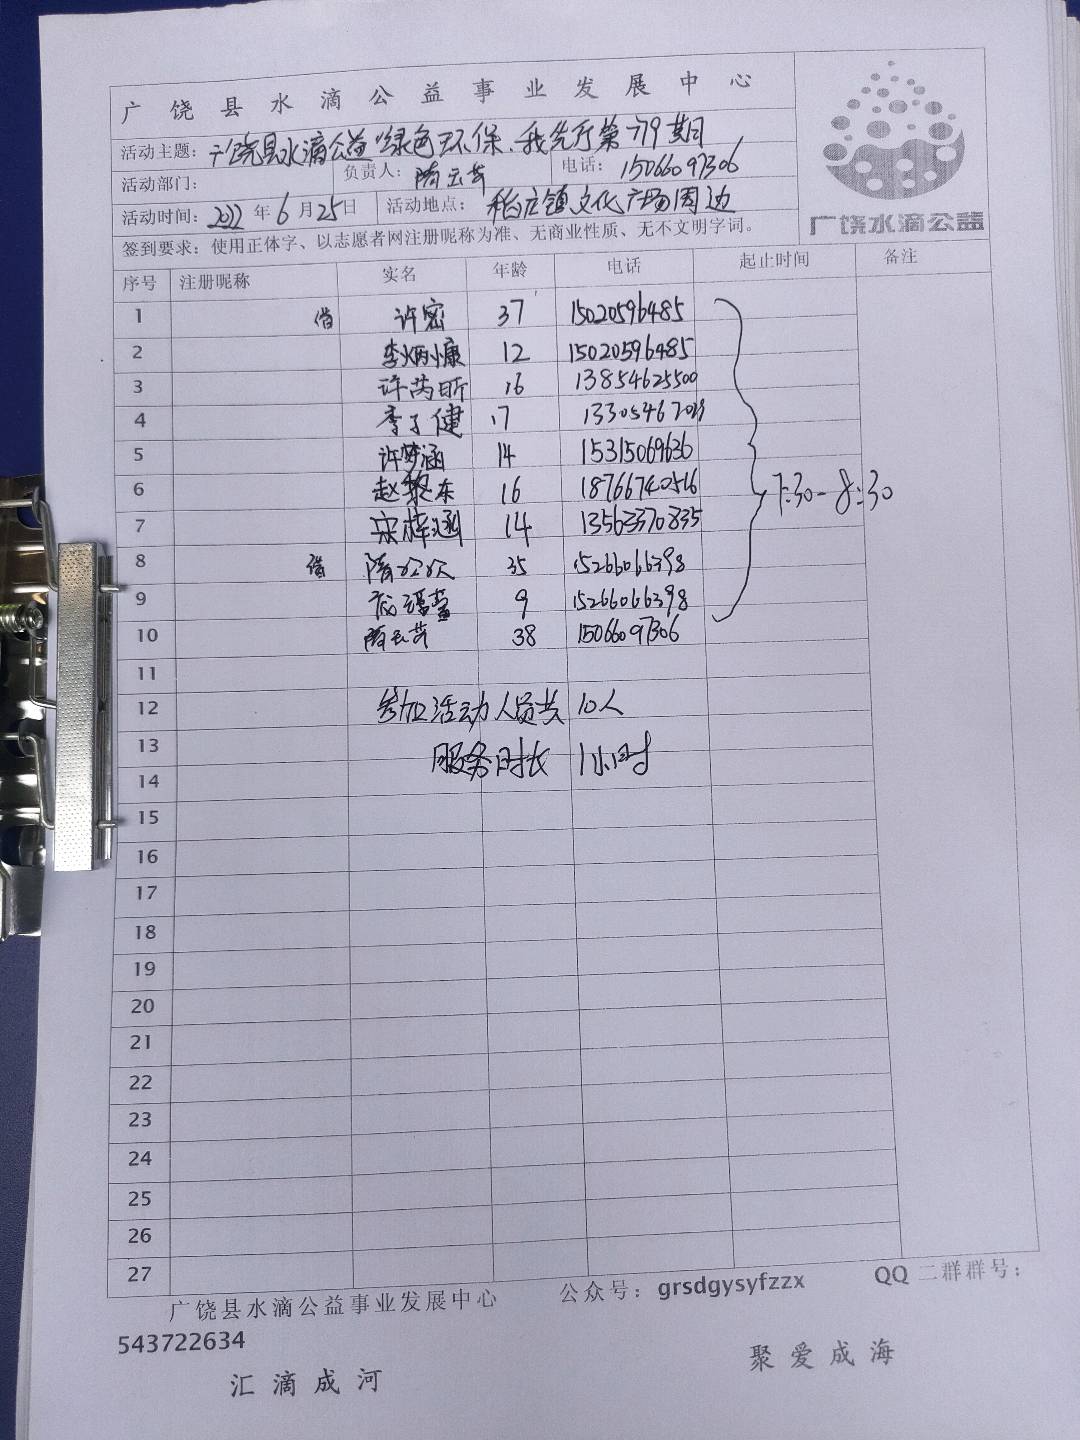 广饶县水滴公益事业发展中心
活动主题：广饶县水滴公益"绿色环保、我先行第719期
活动部门： 负责人：隋云芳 电话：15066097306
活动时间：2022年6月25日 活动地点：稻庄镇文化广场周边
广饶水滴公益
签到要求：使用正体字、以志愿者网注册昵称为准、无商业性质、无不文明字词。
序号 注册昵称 实名 年龄 电话 起止时间 备注
1 借 许密 37 15020596485
2 李炳慷 12 15020596485
3 许芮昕 16 13854625500
4 李子健 17 13305467029
5 许梦涵 14 15315069636
6 赵黎东 16 18766740516
7 宋梓涵 14 13563370835
7:30-8:30
8 借 隋欢欢 35 15266066398
9 9 15266066398
10 隋云芳 38 15066097306
11
12 参加活动人员共 10人
13 服务时长 1小时
14
15
16
17
18
19
20
21
22
23
24
25
26
27
广饶县水滴公益事业发展中心 公众号：grsdgysyfzzx QQ二群群号：
543722634
汇滴成河 聚爱成海